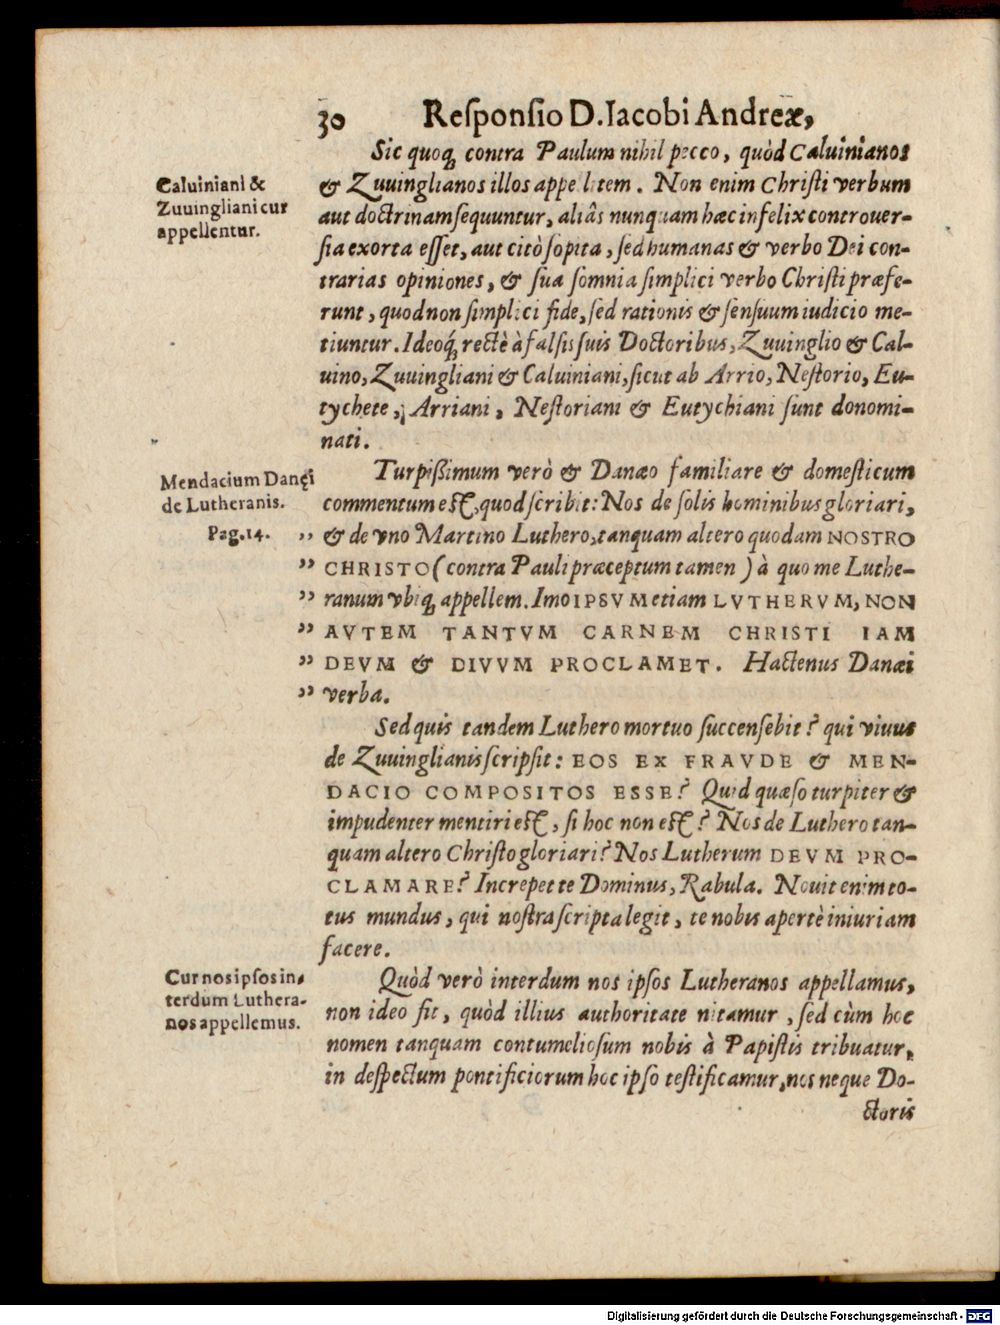 30 Reſponſio D. Iacobi Andreæ,
Sic quoq́; contra Paulum nihil pecco, quòd Caluinianos
& Zuuinglianos illos appellitem. Non enim Chriſti verbum
aut doctrinam ſequuntur, aliâs nunquam hæc infelix controuer-
ſia exorta eſſet, aut citò ſopita, ſed humanas & verbo Dei con-
trarias opiniones, & ſua ſomnia ſimplici verbo Chriſti præfe-
runt, quod non ſimplici fide, ſed rationis & ſenſuum iudicio me-
tiuntur. Ideoq́; rectè à falſis ſuis Doctoribus, Zuuinglio & Cal-
uino, Zuuingliani & Caluiniani, ſicut ab Arrio, Neſtorio, Eu-
tychete, Arriani, Neſtoriani & Eutychiani ſunt donomi-
nati.
Caluiniani &
Zuuingliani cur
appellentur.
Turpißimum verò & Danæo familiare & domeſticum
commentum eſt, quod ſcribit: Nos de ſolis hominibus gloriari,
„ & de vno Martino Luthero, tanquam altero quodam NOSTRO
„ CHRISTO (contra Pauli præceptum tamen) à quo me Luthe-
„ ranum vbiq; appellem. Imo IPSVM etiam LVTHERVM, NON
„ AVTEM TANTVM CARNEM CHRISTI IAM
„ DEVM & DIVVM PROCLAMET. Hactenus Danæi
„ verba.
Mendacium Danęi
de Lutheranis.
Pag. 14.
Sed quis tandem Luthero mortuo ſuccenſebit? qui viuus
de Zuuinglianis ſcripſit: EOS EX FRAVDE & MEN-
DACIO COMPOSITOS ESSE? Quid quæſo turpiter &
impudenter mentiri eſt, ſi hoc non eſt? Nos de Luthero tan-
quam altero Chriſto gloriari? Nos Lutherum DEVM PRO-
CLAMARE? Increpet te Dominus, Rabula. Nouit enim to-
tus mundus, qui noſtra ſcripta legit, te nobis apertè iniuriam
facere.
Quòd verò interdum nos ipſos Lutheranos appellamus,
non ideo fit, quòd illius authoritate nitamur, ſed cùm hoc
nomen tanquam contumelioſum nobis à Papiſtis tribuatur,
in deſpectum pontificiorum hoc ipſo teſtificamur, nos neque Do-
ctoris
Cur nos ipſos in-
terdum Luthera-
nos appellemus.
Digitalisierung gefördert durch die Deutsche Forschungsgemeinschaft - DFG